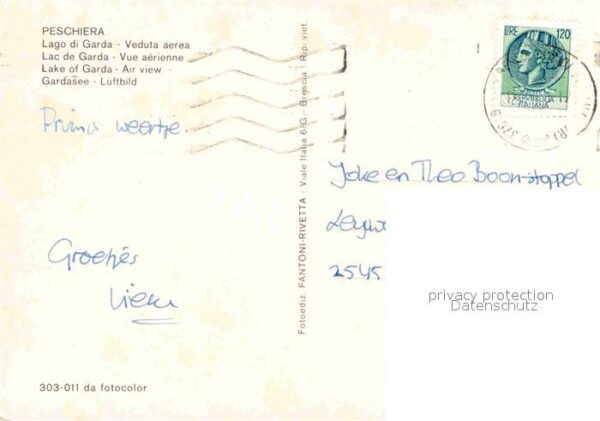 PESCHIERA
Lago di Garda - Veduta aerea
Lac de Garda - Vue aérienne
Lake of Garda - Air view
Gardasee - Luftbild
Prima weertje.
Groetjes
303-011 da fotocolor
Fotoediz. FANTONI-RIVETTA - Viale Italia 6/G - Brescia - Rip. viet.
LIRE 120
REPVBBLICA
ITALIANA
Joke en Theo Boon-stoppel
2545
privacy protection
Datenschutz